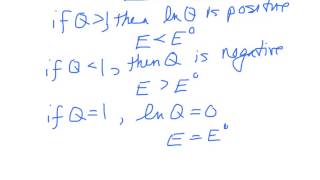 if Q>1, then ln Q is positive
E < E⁰
if Q <1, then Q is negative
E > E⁰
if Q=1, ln Q = 0
E = E⁰